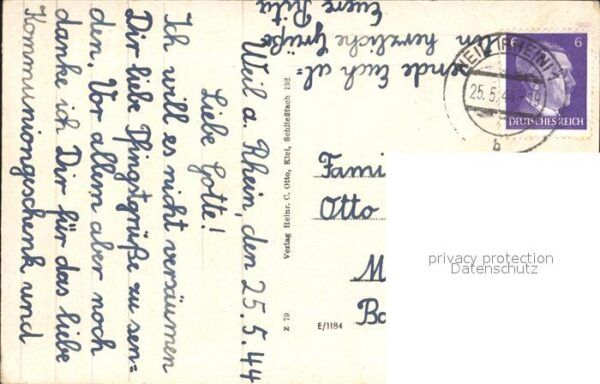 Weil a. Rhein, den 25.5.44
Liebe Gotte!
Ich will es nicht versäumen
Dir liebe Pfingstgrüße zu sen=
den. Vor allem aber noch
danke ich Dir für das liebe
Kommuniongeschenk und
sende Euch al=
len herzliche Grüße
Euere Rita
Verlag Heinr. C. Otto, Kiel, Schließfach 152
Z 79
E/1184
WEIL (RHEIN) 1
25.5.44
b
6
DEUTSCHES REICH
Fami
Otto
M
Ba
privacy protection
Datenschutz